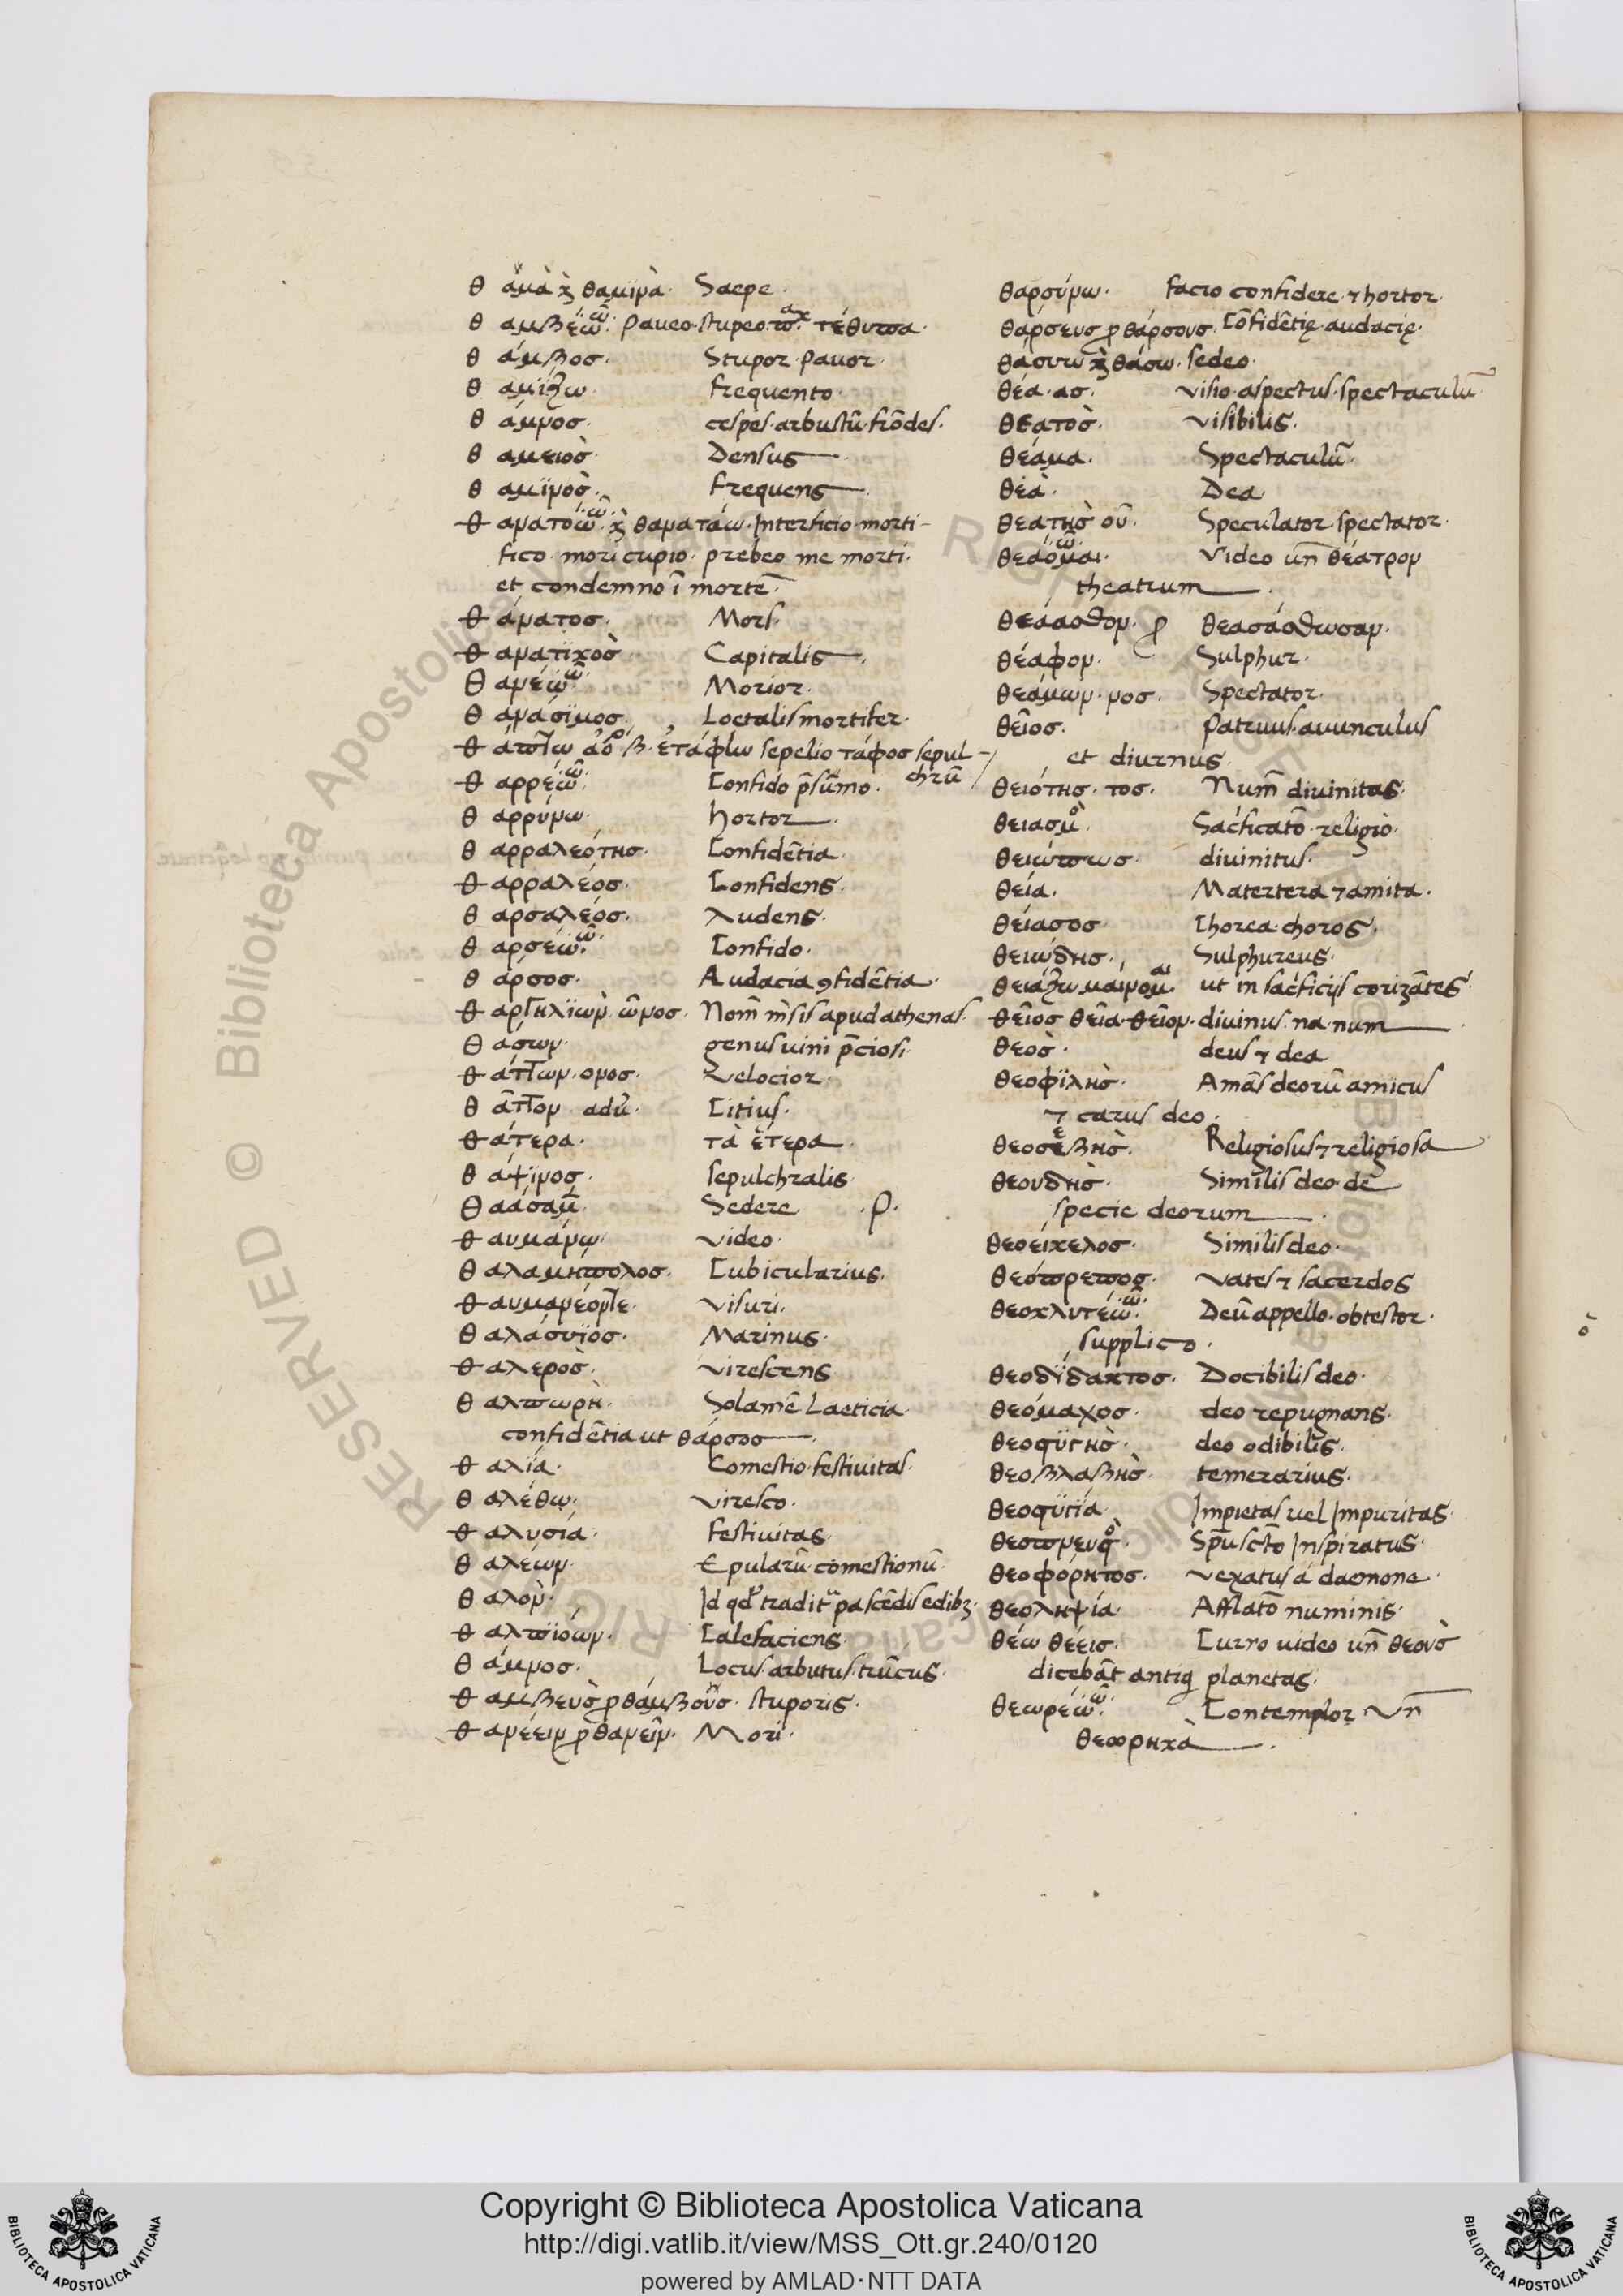 θ αμὰ ϗ θαμινὰ· Saepe·
θ αμβέω ῶ· paueo· stupeo· τέθυπα·
θ άμβοσ· Stupor pauor·
θ αμίζω· frequento·
θ άμνοσ· cespes· arbustū· frōdes·
θ αμειὸσ Densus
θ αμϊνὸσ· frequens
θ ανατοω ῶ· ϗ θανατάω· Interficio· morti-
fico· mori cupio· prebeo me morti·
et condemno ī mortē
θ άνατοσ· Mors·
θ ανατϊκὸσ Capitalis
θ ανέω ῶ· Morior·
θ ανάσϊμοσ· Loetalis mortifer·
θ άπτω β· ἐτάφω sepelio τάφοσ sepul-
chrū
θ αρρέω ῶ· Confido p̄sūmo·
θ αρρύνω hortor
θ αρραλεότησ· Confidētia·
θ αρραλέοσ· Confidens·
θ αρσαλέοσ· Audens·
θ αρσέω ῶ· Confido·
θ άρσοσ· Audacia ꝯfidētia·
θ αργηλϊὼν ῶνοσ· Nom̄ m̄sis apud athenas·
θ άσων· genus uini p̄ciosi·
θ άττων· ονοσ· Velocior·
θ ᾶττον adu̅· Citius·
θ άτερα· τὰ ἕτερα
θ άψϊνοσ· sepulchralis
θ αάσαμ̄· Sedere ·ρ·
θ αυμάνω· video·
θ αλαμηπολοσ· Cubicularius·
θ αυμανέοντε· visuri·
θ αλάσυϊοσ· Marinus·
θ αλεροσ· virescens
θ αλπωρὴ· Solamē· Laeticia·
confidētia ut θάρσοσ
θ αλϊά· Comestio· festiuitas·
θ αλέθω· viresco·
θ αλυσιά· festiuitas·
θ αλέων· Epularū· comestionū·
θ αλὸν· Id qd̄ tradit̄ pascēdis edibȝ·
θ αλπϊόων· Calefaciens·
θ άμνοσ· Locus· arbutus· trūcus·
θ αμβευσ ꝓ θάμβουσ· stuporis·
θ ανέειν ꝓ θανεῖν· Mori·
θαρσύνω· facio confidere ⁊ hortor·
θάρσευσ ꝓ θάρσουσ· Cōfidētię· audacię·
θάσυω ϗ θάσω· sedeo·
θέα· ασ· visio· aspectus· spectaculū
θεατὸσ· visibilis·
θέαμα· Spectaculū·
θεὰ· Dea
θεατησ οῦ· Speculator· spectator·
θεάομαι ῶ· Video un̄ θέατρον
theatrum
θεάασθον· ꝓ θεασάσθωσαν·
θέαφον· Sulphur·
θεάμων· νοσ· Spectator·
θεῖοσ· Patruus· auunculus
et diurnus·
θειότησ· τοσ· Num̄ diuinitas·
θειασμο· Sac̄ficatō· religio·
θειώπωσ· diuinitus·
θεία· Matertera ⁊ amita·
θείασοσ Chorea· choros·
θειώδησ· Sulphureus·
θειάζω μαίνομαι· ut in sac̄ficijs corizātes·
θεῖοσ θεῖα· θεῖον· diuinus· na· num
θεὸσ· deus ⁊ dea
θεοφϊλησ· Amās deorū amicus
⁊ carus deo·
θεοσεβησ· Religiosus ⁊ religiosa
θεουδησ· Similis deo· de
specie deorum
θεοείκελοσ· Similis deo·
θεόπρεποσ· vates ⁊ sacerdos
θεοκλυτέω ῶ· Deū appello· obtestor·
supplico·
θεοδίδακτοσ· Docibilis deo·
θεόμαχοσ· deo repugnans·
θεοφϋγησ· deo odibilis·
θεοβλαβησ· temerarius·
θεοφϋγϊα· Impietas uel Impuritas·
θεοπνευσο· Sp̄u sctō Inspiratus·
θεοφόρητοσ· vexatus a daemone·
θεοληψία· Afflatō numinis·
θέω θέεισ· Curro uideo un̄ θεουσ
dicebāt antiq planetas·
θεωρέω ῶ· Contemplor Un̄
θεωρηκὰ
Copyright © Biblioteca Apostolica Vaticana
http://digi.vatlib.it/view/MSS_Ott.gr.240/0120
powered by AMLAD·NTT DATA